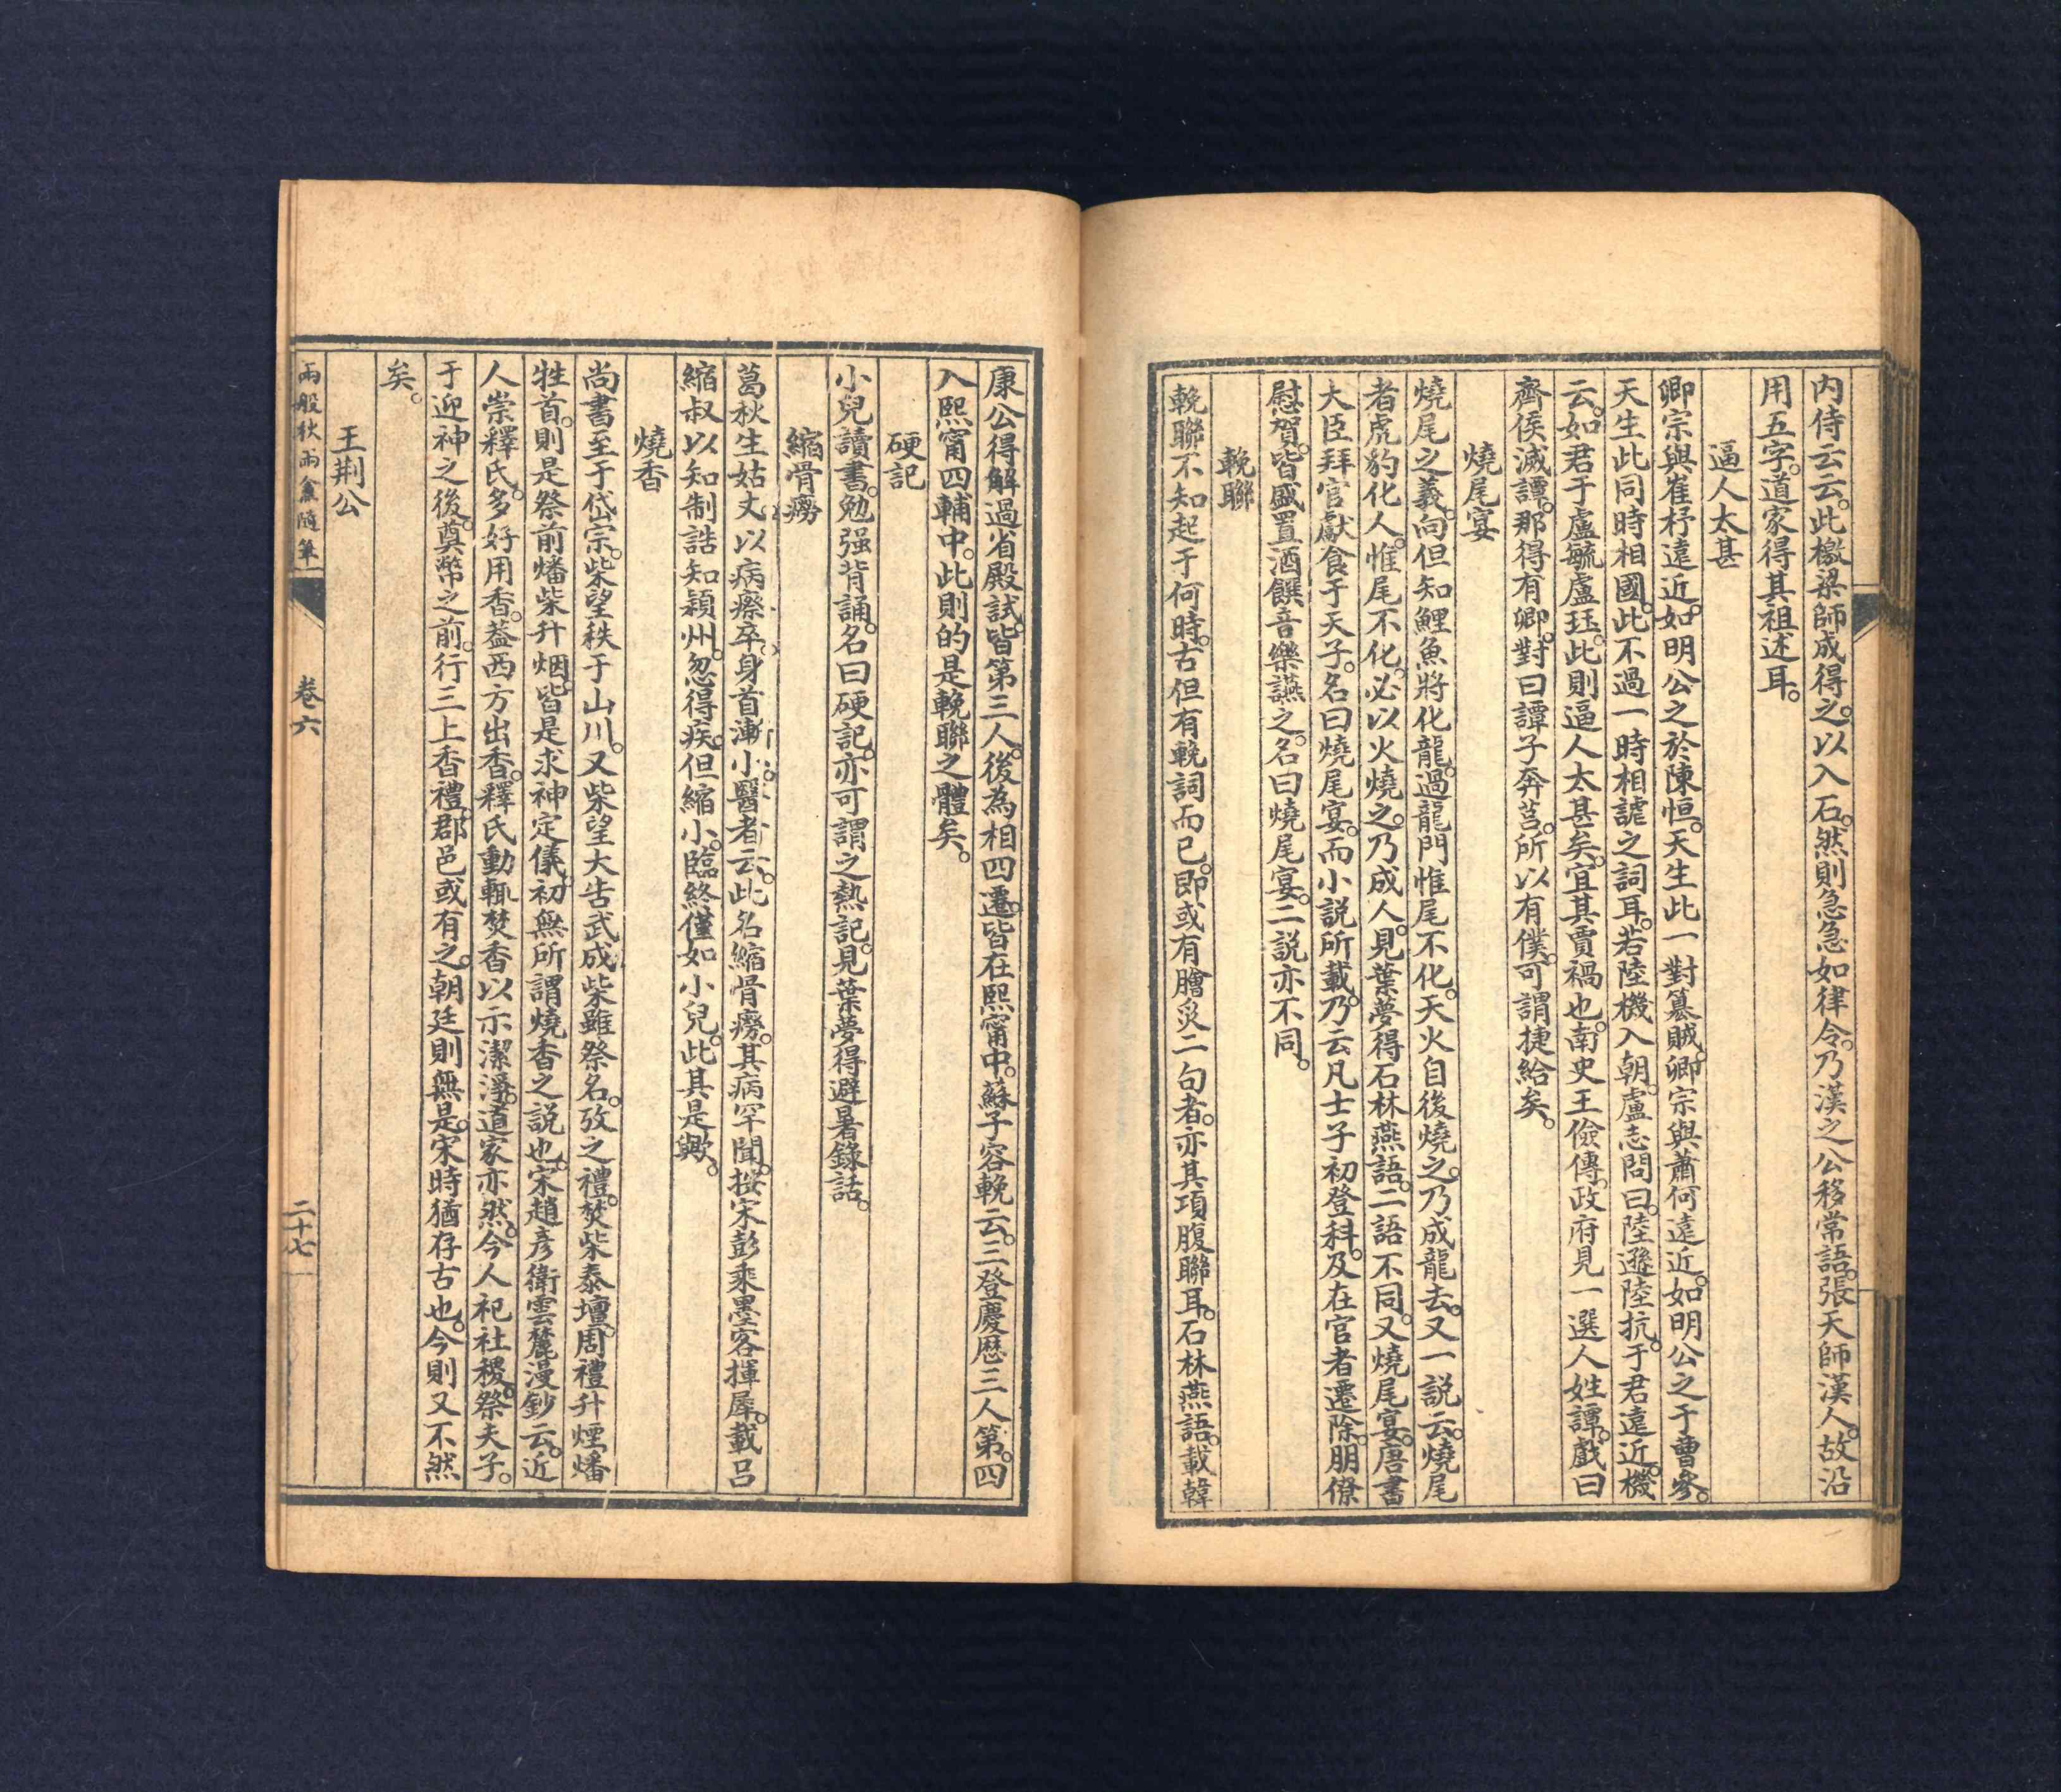 內侍云云。此檄梁師成得之。以入石。然則急急如律令。乃漢之公移常語。張天師漢人。故沿
用五字。道家得其祖述耳。
逼人太甚
卿宗與崔杼遠近。如明公之於陳恒。天生此一對篡賊。卿宗與蕭何遠近。如明公之于曹參。
天生此同時相國。此不過一時相謔之詞耳。若陸機入朝。盧志問曰。陸遜陸抗。于君遠近。機
云。如君于盧毓盧珏。此則逼人太甚矣。宜其賈禍也。南史王儉傳。政府見一選人姓譚。戲曰
齊侯滅譚。那得有卿。對曰譚子奔莒。所以有僕。可謂捷給矣。
燒尾宴
燒尾之義。向但知鯉魚將化龍。過龍門惟尾不化。天火自後燒之。乃成龍去。又一說云。燒尾
者虎豹化人。惟尾不化。必以火燒之。乃成人。見葉夢得石林燕語。二語不同。又燒尾宴。唐書
大臣拜官獻食于天子。名曰燒尾宴。而小說所載。乃云凡士子初登科。及在官者遷除。朋僚
慰賀。皆盛置酒饌音樂讌之。名曰燒尾宴。二說亦不同。
輓聯
輓聯不知起于何時。古但有輓詞而已。即或有膾炙二句者。亦其項腹聯耳。石林燕語。載韓
康公得解過省殿試。皆第三人。後為相四遷。皆在熙甯中。蘇子容輓云。三登慶歷三人第。四
入熙甯四輔中。此則的是輓聯之體矣。
硬記
小兒讀書。勉强背誦。名曰硬記。亦可謂之熱記。見葉夢得避暑錄話。
縮骨癆
葛秋生姑丈。以病瘵卒。身首漸小。醫者云。此名縮骨癆。其病罕聞。按宋彭乘墨客揮犀。載呂
縮叔以知制誥知潁州。忽得疾。但縮小。臨終僅如小兒。此其是歟。
燒香
尚書至于岱宗。柴望秩于山川。又柴望大告武成。柴雖祭名。攷之禮。焚柴泰壇。周禮升煙燔
牲首。則是祭前燔柴升烟。皆是求神定儀。初無所謂燒香之說也。宋趙彥衛雲麓漫鈔云。近
人崇釋氏。多好用香。葢西方出香。釋氏動輒焚香以示潔淨。道家亦然。今人祀社稷。祭夫子。
于迎神之後。奠幣之前。行三上香禮。郡邑或有之。朝廷則無是。宋時猶存古也。今則又不然
矣。
王荆公
兩般秋雨盦隨筆 卷六 二十七